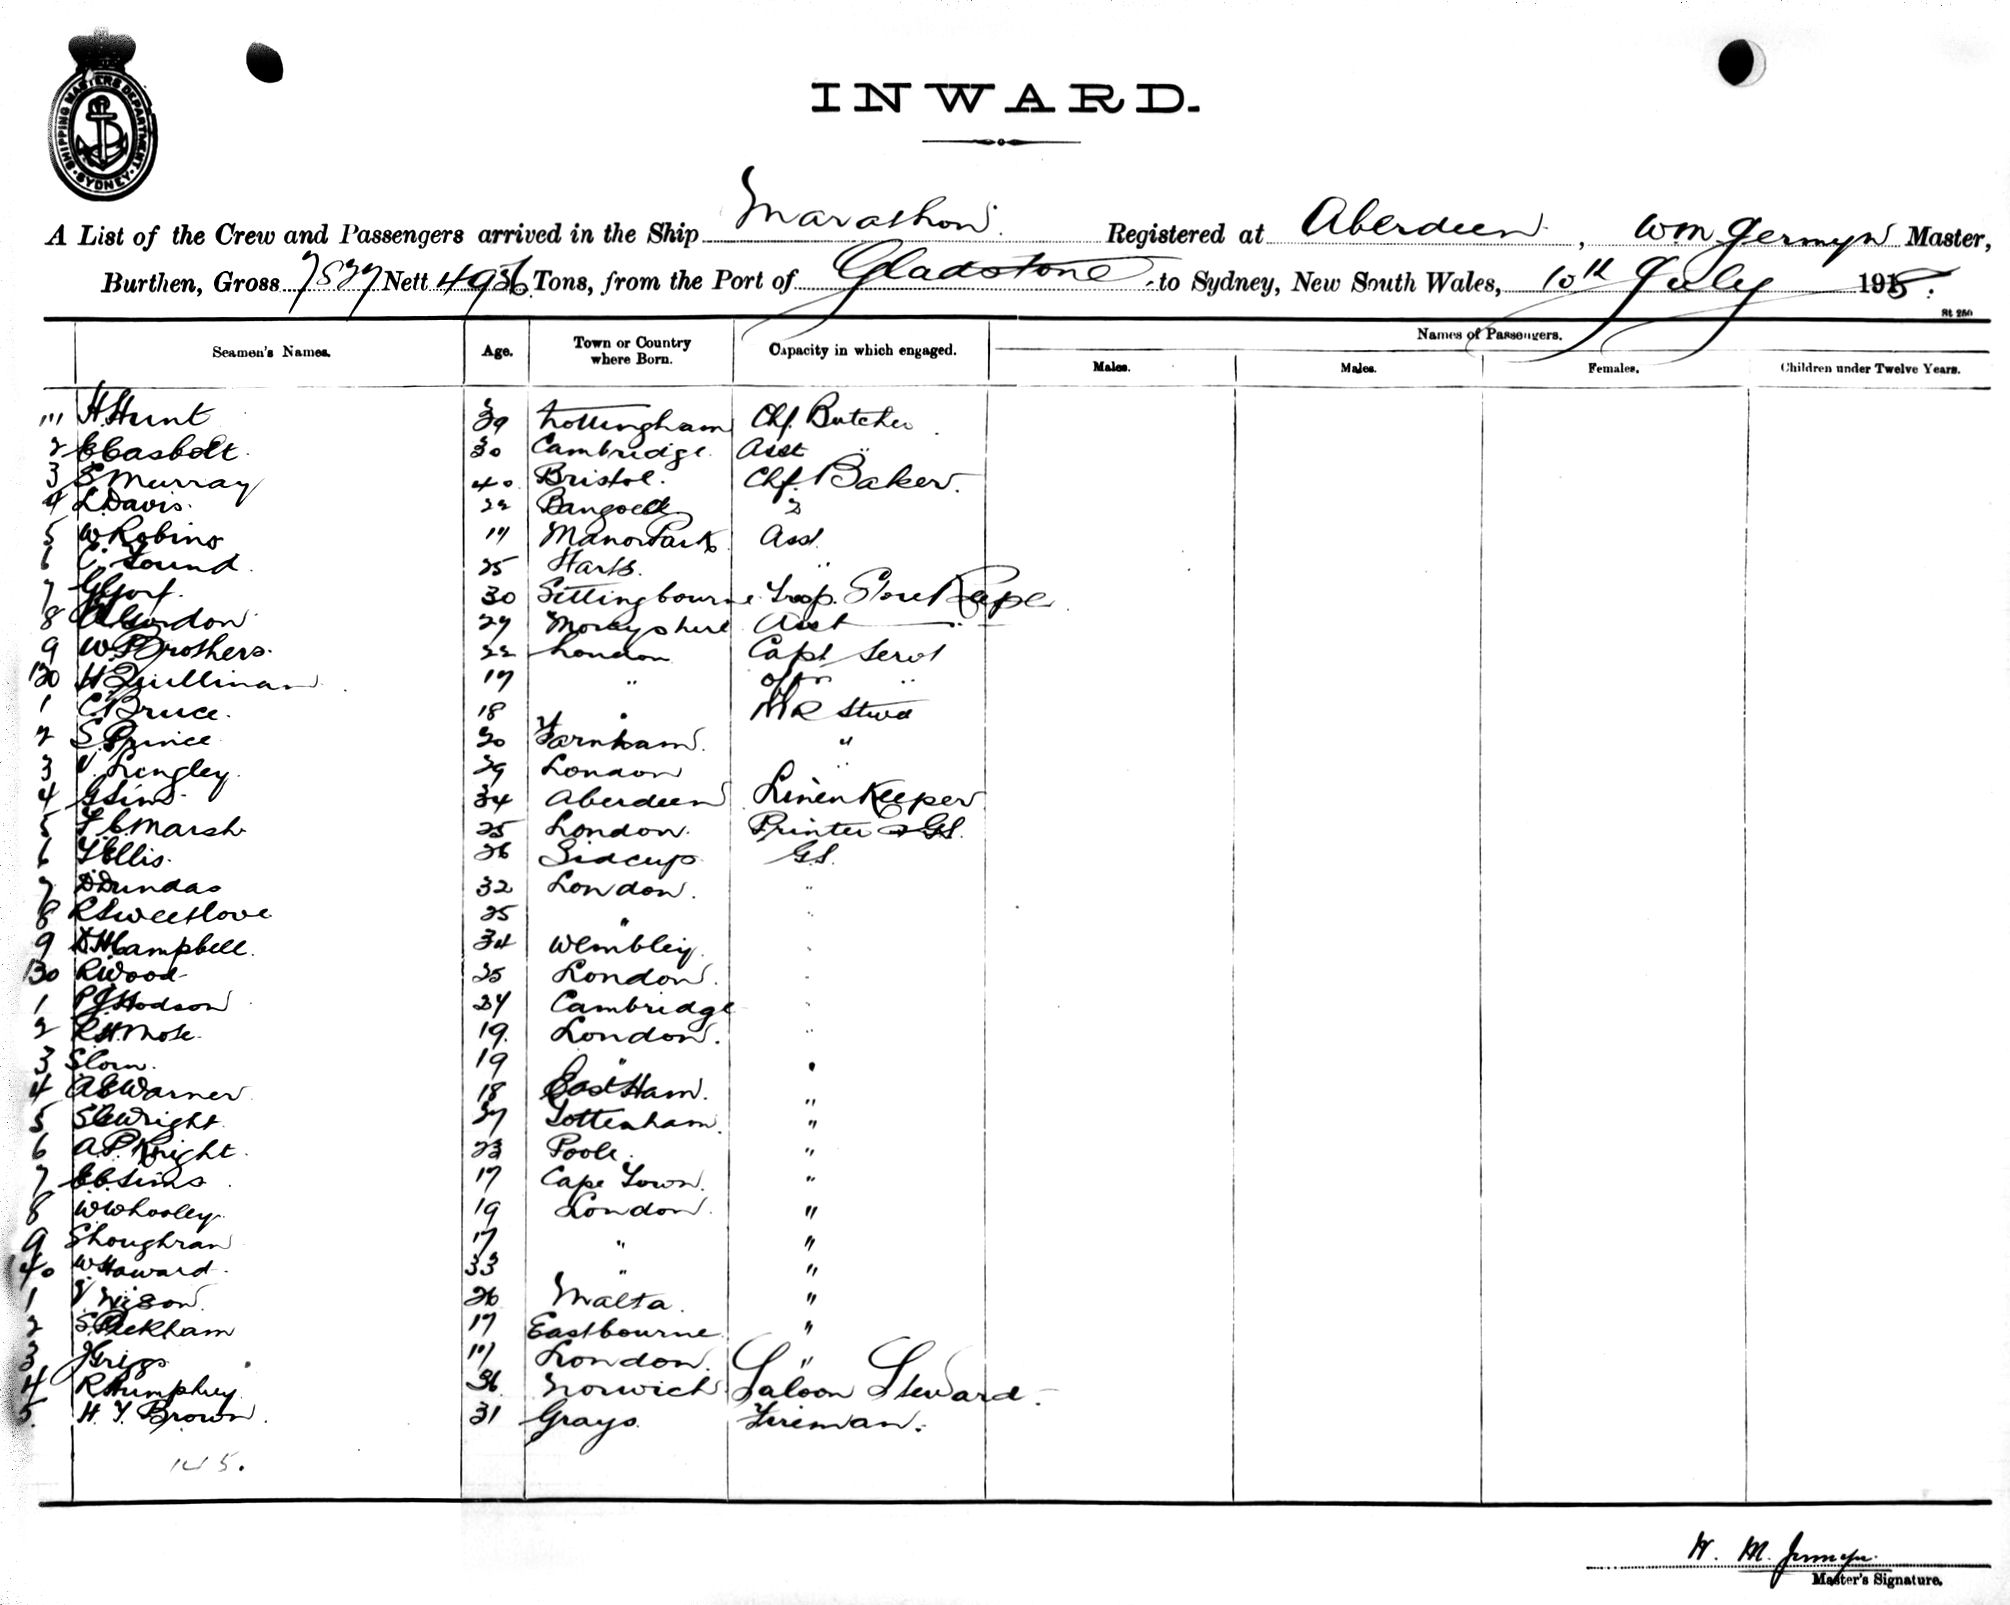 SHIPPING MASTERS DEPARTMENT SYDNEY
INWARD.
A List of the Crew and Passengers arrived in the Ship Marathon. Registered at Aberdeen, Wm Jermyn Master,
Burthen, Gross 7827 Nett 4936 Tons, from the Port of Gladstone to Sydney, New South Wales, 10th July 1915.
St 250
Seamen's Names. Age. Town or Country where Born. Capacity in which engaged. Names of Passengers.
Males. Males. Females. Children under Twelve Years.
111 H Hunt 39 Nottingham Chf. Butcher
2 C Casbolt 30 Cambridge Asst "
3 E Murray 40 Bristol. Chf. Baker.
4 L Davis. 22 2
5 W Robins 17 Manor Park Asst.
6 C. Found 25 Harts. "
7 30 Sittingbourne Trop. Store Keeper
8 A Gordon 27 Morayshire Asst
9 W. Brothers. 22 London Capt Servt
120 H Quillinan 17 " offrs "
1 C Bruce. 18 " MR Stwd
2 S. Prince 20 Farnham. "
3 Lingley. 29 London "
4 G Sims 34 Aberdeen Linen Keeper
5 F. C. Marsh 25 London. Printer & GS.
6 T Ellis. 26 Sidcup G.S.
7 D Dundas 32 London. "
8 R Sweetlove 25 " "
9 D H Campbell. 34 Wembley. "
130 R Wood 25 London. "
1 P J Hodson 24 Cambridge "
2 R. H. Mose. 19. London. "
3 19 " "
4 A E Warner 18 East Ham. "
5 S C Wright. 27 Tottenham. "
6 A. P. Knight. 23 Poole. "
7 C C Sims 17 Cape Town. "
8 W Whooley. 19 London. "
9 S Loughran 17 " "
40 W Howard. 33 " "
1 26 Malta. "
2 S. Peckham 17 Eastbourne "
3 J Griggs 17 London. "
4 R Humphrey. 36 Norwich Saloon Steward.
5. H. T. Brown. 31 Grays. Fireman.
145.
W. M. Jermyn.
Master's Signature.